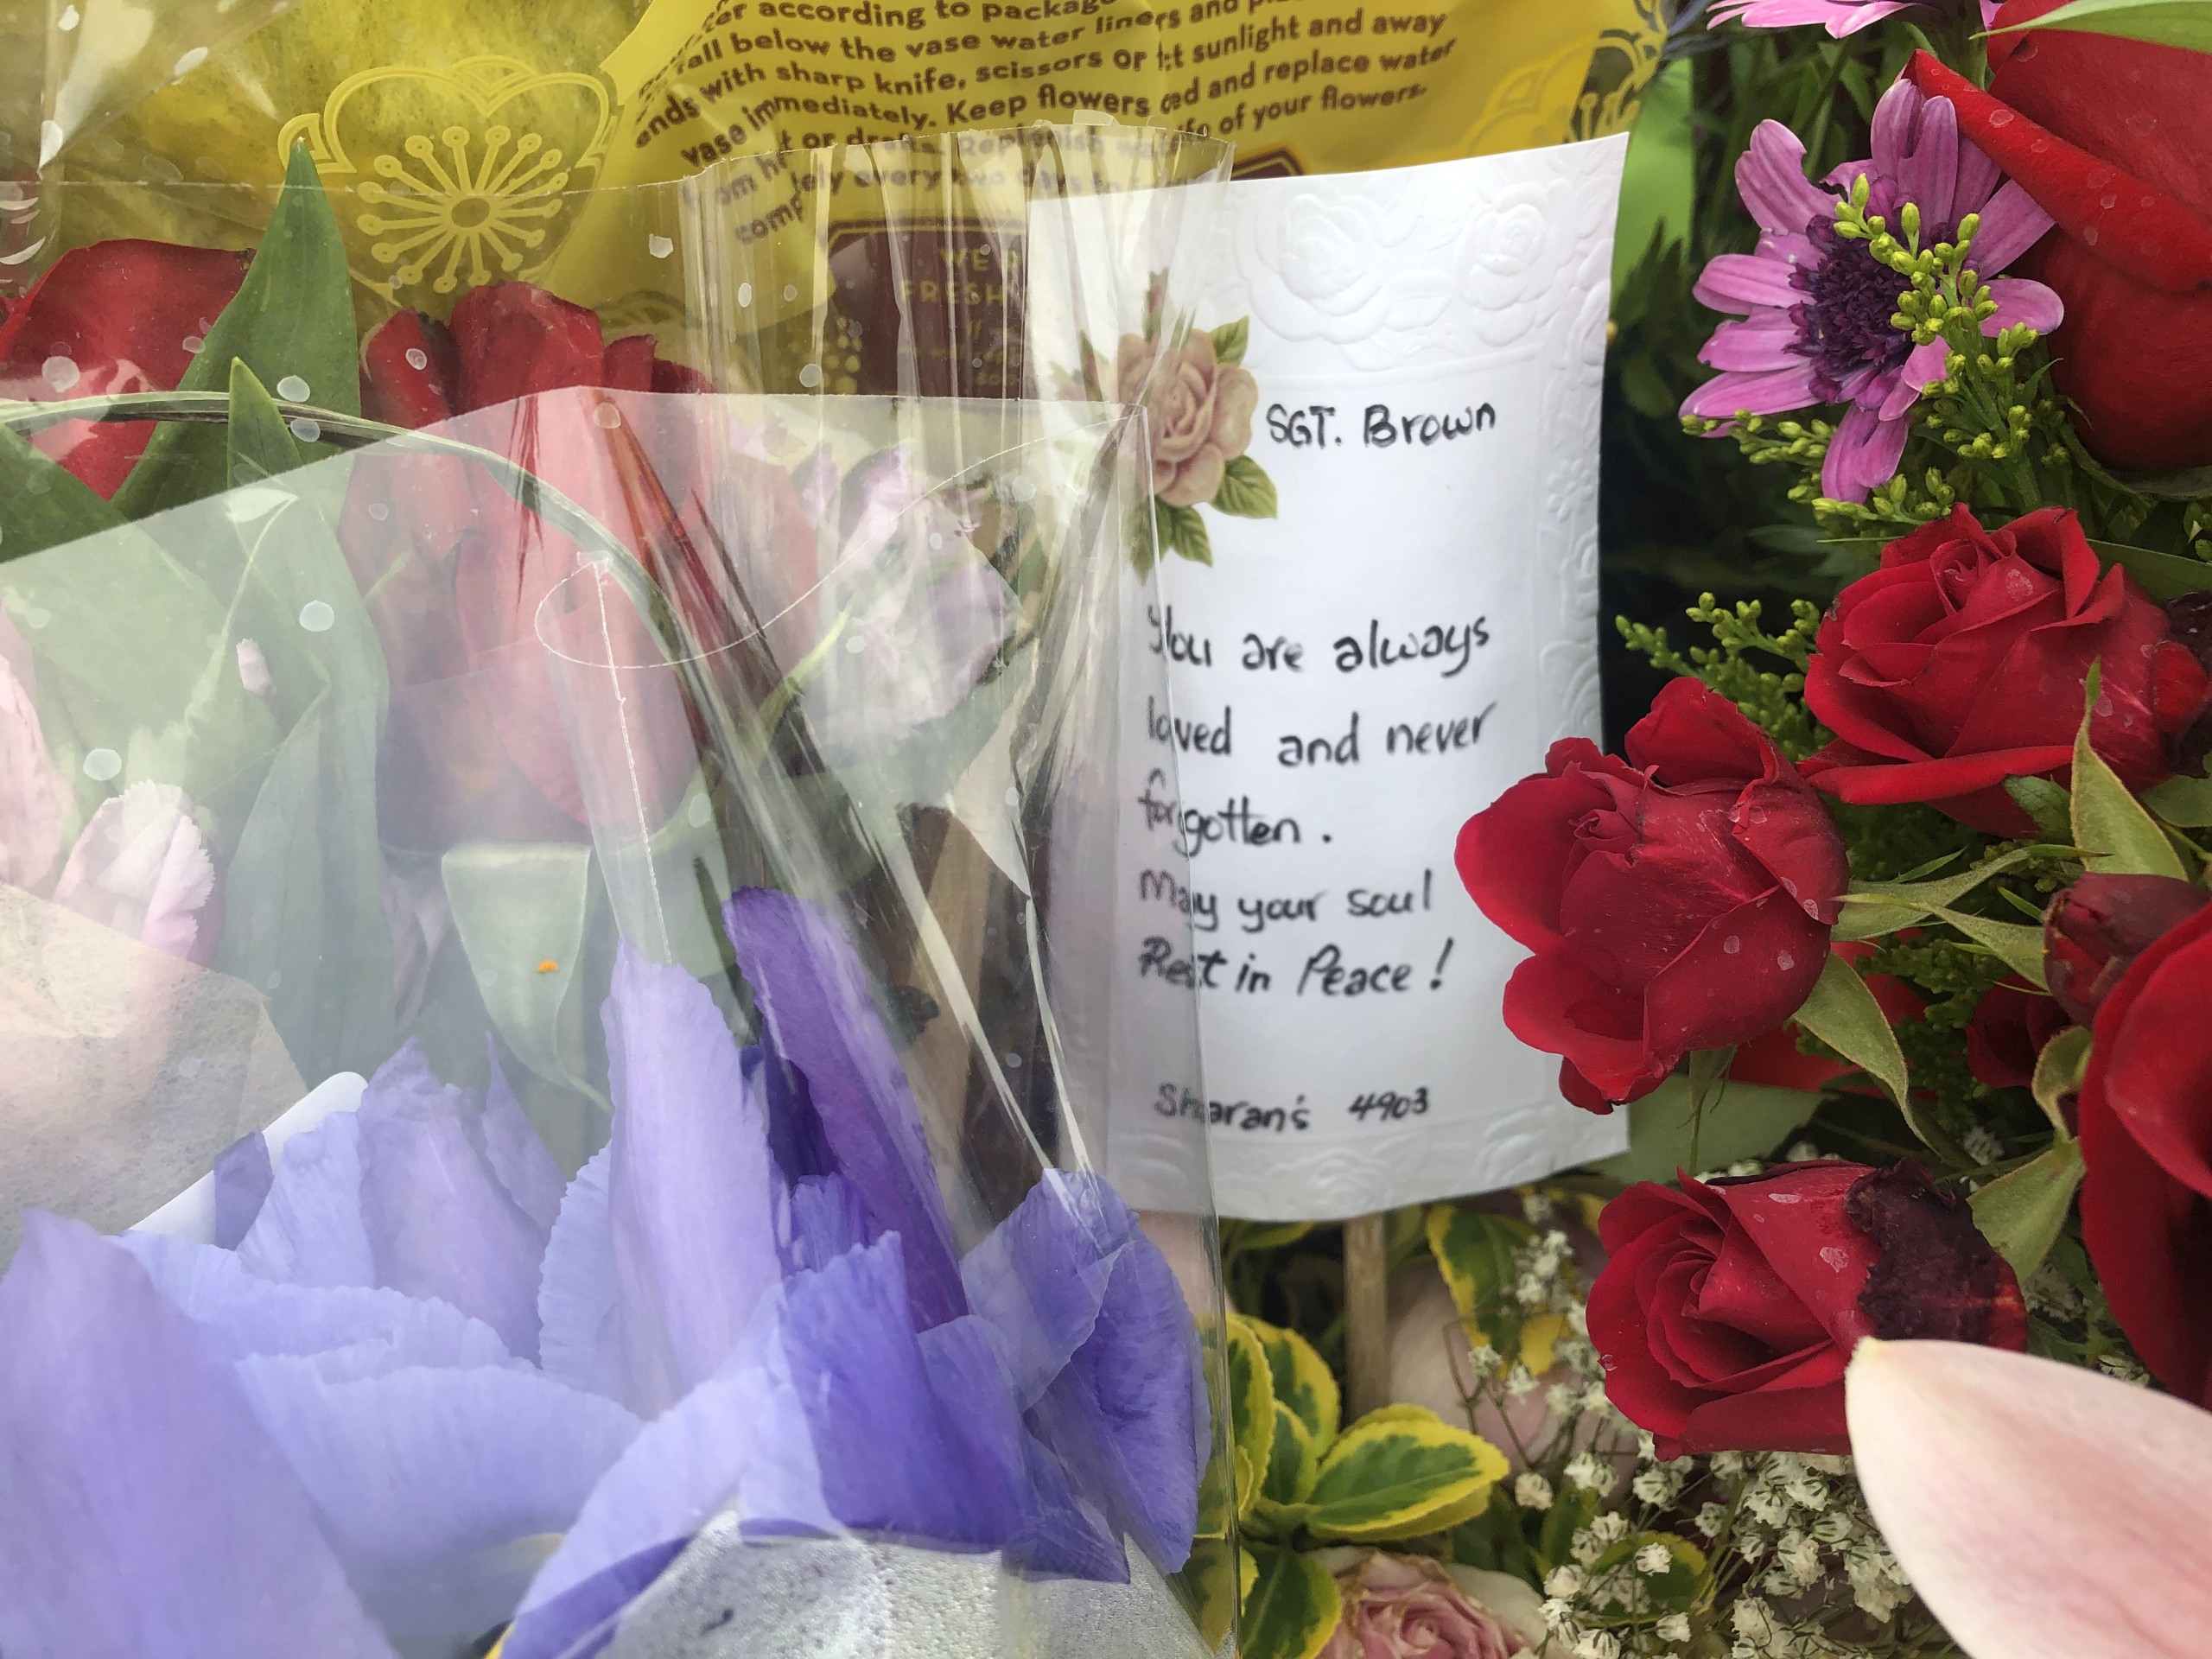 er according to packag
fall below the vase water liners and
ends with sharp knife, scissors or sunlight and away
vase immediately. Keep flowers and replace water
or drafts. Replenish of your flowers.
every two days to
WE
FRESH
SGT. Brown
You are always
loved and never
forgotten.
May your soul
Rest in Peace!
Sharan's 4903